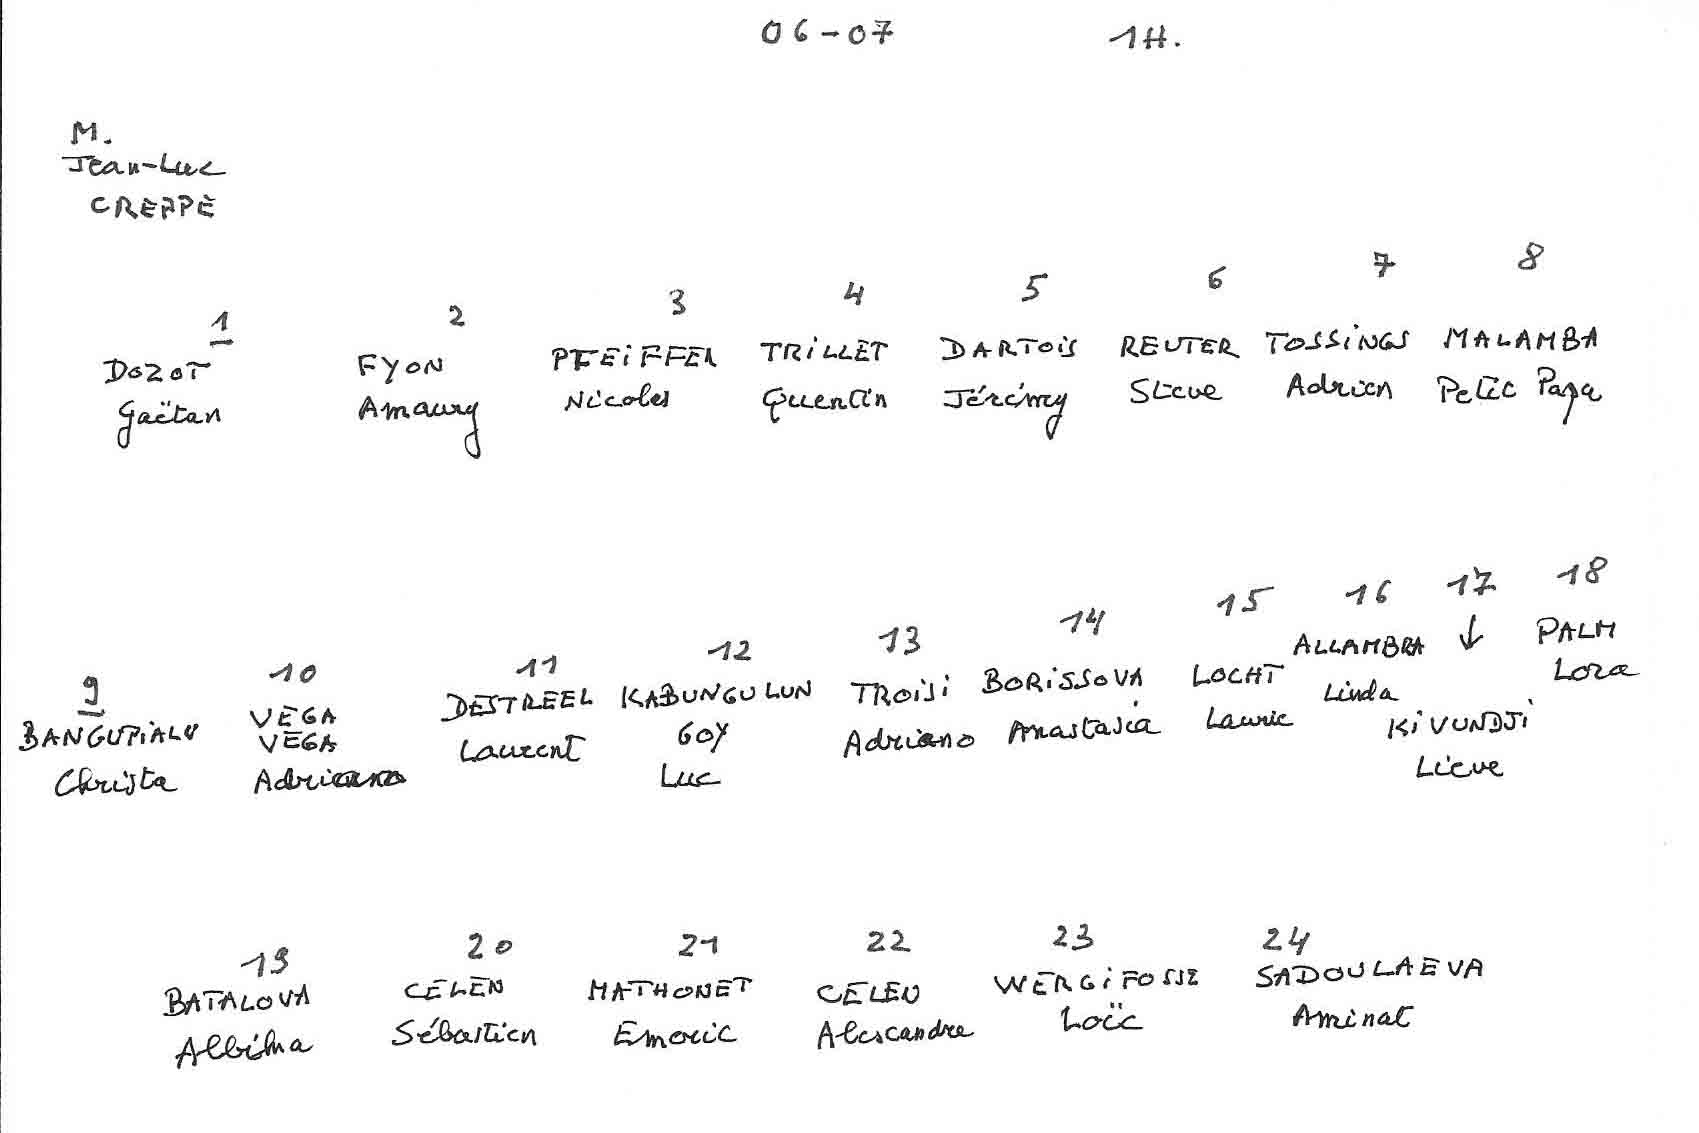 06-07 1H.
M.
Jean-Luc
CREPPE
1 2 3 4 5 6 7 8
DOZOT FYON PFEIFFER TRILLET DARTOIS REUTER TOSSINGS MALAMBA
Gaëtan Amaury Nicolas Quentin Jérémy Steve Adrien Petit Papa
9 10 11 12 13 14 15 16 17 18
BANGUPIALU VEGA DESTREEL KABUNGULUN TROISI BORISSOVA LOCHT ALLAMBRA ↓ PALM
VEGA GOY KIVUNDJI
Christa Adriano Laurent Luc Adriano Anastasia Laurie Linda Lieve Lora
19 20 21 22 23 24
BATALOVA CELEN MATHONET CELEN WERGIFOSSE SADOULAEVA
Albina Sébastien Emeric Alexandre Loïc Aminat